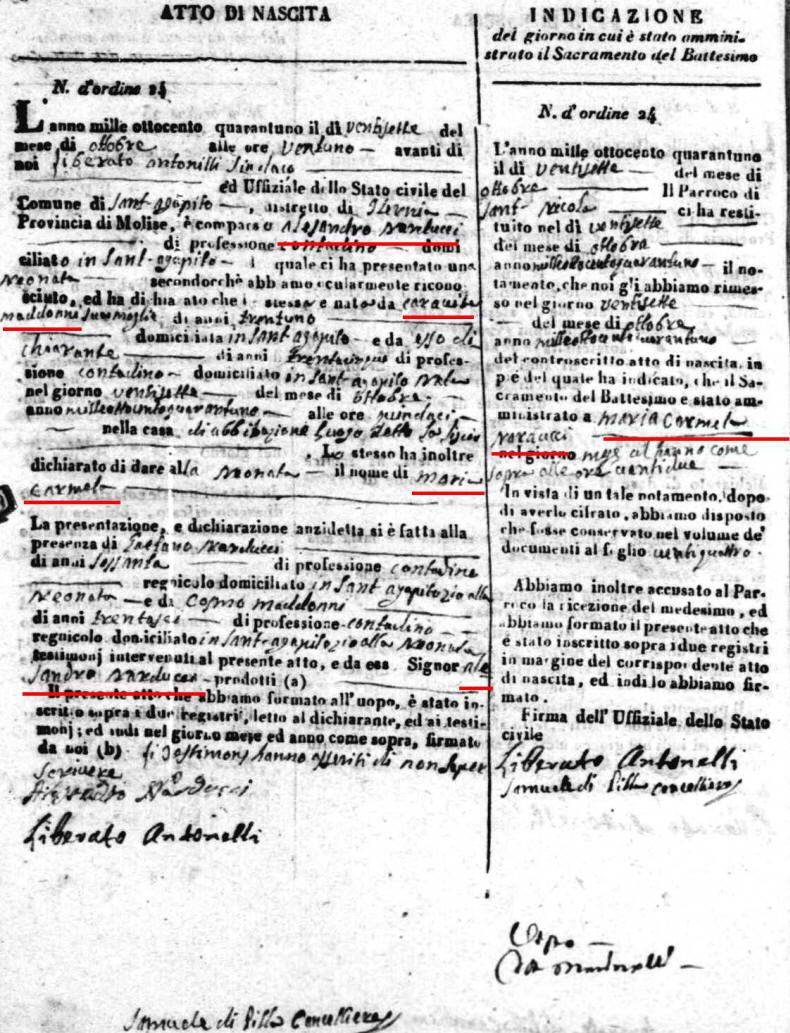 ATTO DI NASCITA
N. d'ordine 24
L'anno mille ottocento quarantuno il dì ventisette del
mese di ottobre alle ore ventuno avanti di
noi Liberato Antonilli Sindaco
ed Uffiziale dello Stato civile del
Comune di Sant'agapito, distretto di Isernia
Provincia di Molise, è comparso Alesandro Narducci
di professione contadino domi
ciliato in Sant'agapito quale ci ha presentato una
Neonata secondorchè abbiamo ocularmente ricono
sciuto, ed ha dichiarato che stessa è nata da
maddonni sua moglie di anni trentuno
domiciliata in Sant agapito e da esso di
chiarante di anni trentacinque di profes-
sione contadino domiciliato in Sant-agapito Nata
nel giorno ventisette del mese di ottobre
anno milleottocentoquarantuno alle ore quindici
nella casa di abbitazione luogo detto
Lo stesso ha inoltre
dichiarato di dare alla Neonata il nome di Maria
Carmela
La presentazione, e dichiarazione anzidetta si è fatta alla
presenza di Gaetano Narducci
di anni Sessanta di professione contadino
regnicolo domiciliato in Sant agapito zio alla
Neonata e da Cosmo Maddonni
di anni trentasei di professione contadino
regnicolo domiciliato in Sant-agapito zio alla Neonata
testimonj intervenuti al presente atto, e da esso Signor Ale
Sandro Narducci prodotti (a)
Il presente atto che abbiamo formato all'uopo, è stato in-
scritto sopra i due registri, letto al dichiarante, ed ai testi-
monj; ed indi nel giorno mese ed anno come sopra, firmato
da noi (b) testimonj hanno asseriti di non saper
scrivere
Alesandro Narducci
Liberato Antonelli
Samuele di Pilla Cancelliere
INDICAZIONE
del giorno in cui è stato ammini-
strato il Sacramento del Battesimo
N. d'ordine 24
L'anno mille ottocento quarantuno
il dì ventisette del mese di
ottobre Il Parroco di
Sant Nicola ci ha resti-
tuito nel dì ventisette
del mese di ottobre
anno milleottocentoquarantuno il no-
tamento, che noi gli abbiamo rimes-
so nel giorno ventisette
del mese di ottobre
anno milleottocentoquarantuno
del controscritto atto di nascita, in
piè del quale ha indicato, che il Sa-
cramento del Battesimo è stato am-
ministrato a Maria Carmela
Narducci
nel giorno mese ed hanno come
sopra alle ore ventidue
In vista di un tale notamento, dopo
di averlo cifrato, abbiamo disposto
che fosse conservato nel volume de'
documenti al foglio ventiquattro
Abbiamo inoltre accusato al Par-
roco la ricezione del medesimo, ed
abbiamo formato il presente atto che
è stato inscritto sopra i due registri
in margine del corrispondente atto
di nascita, ed indi lo abbiamo fir-
mato.
Firma dell'Uffiziale dello Stato
civile
Liberato Antonelli
Samuele di Pilla Cancelliere